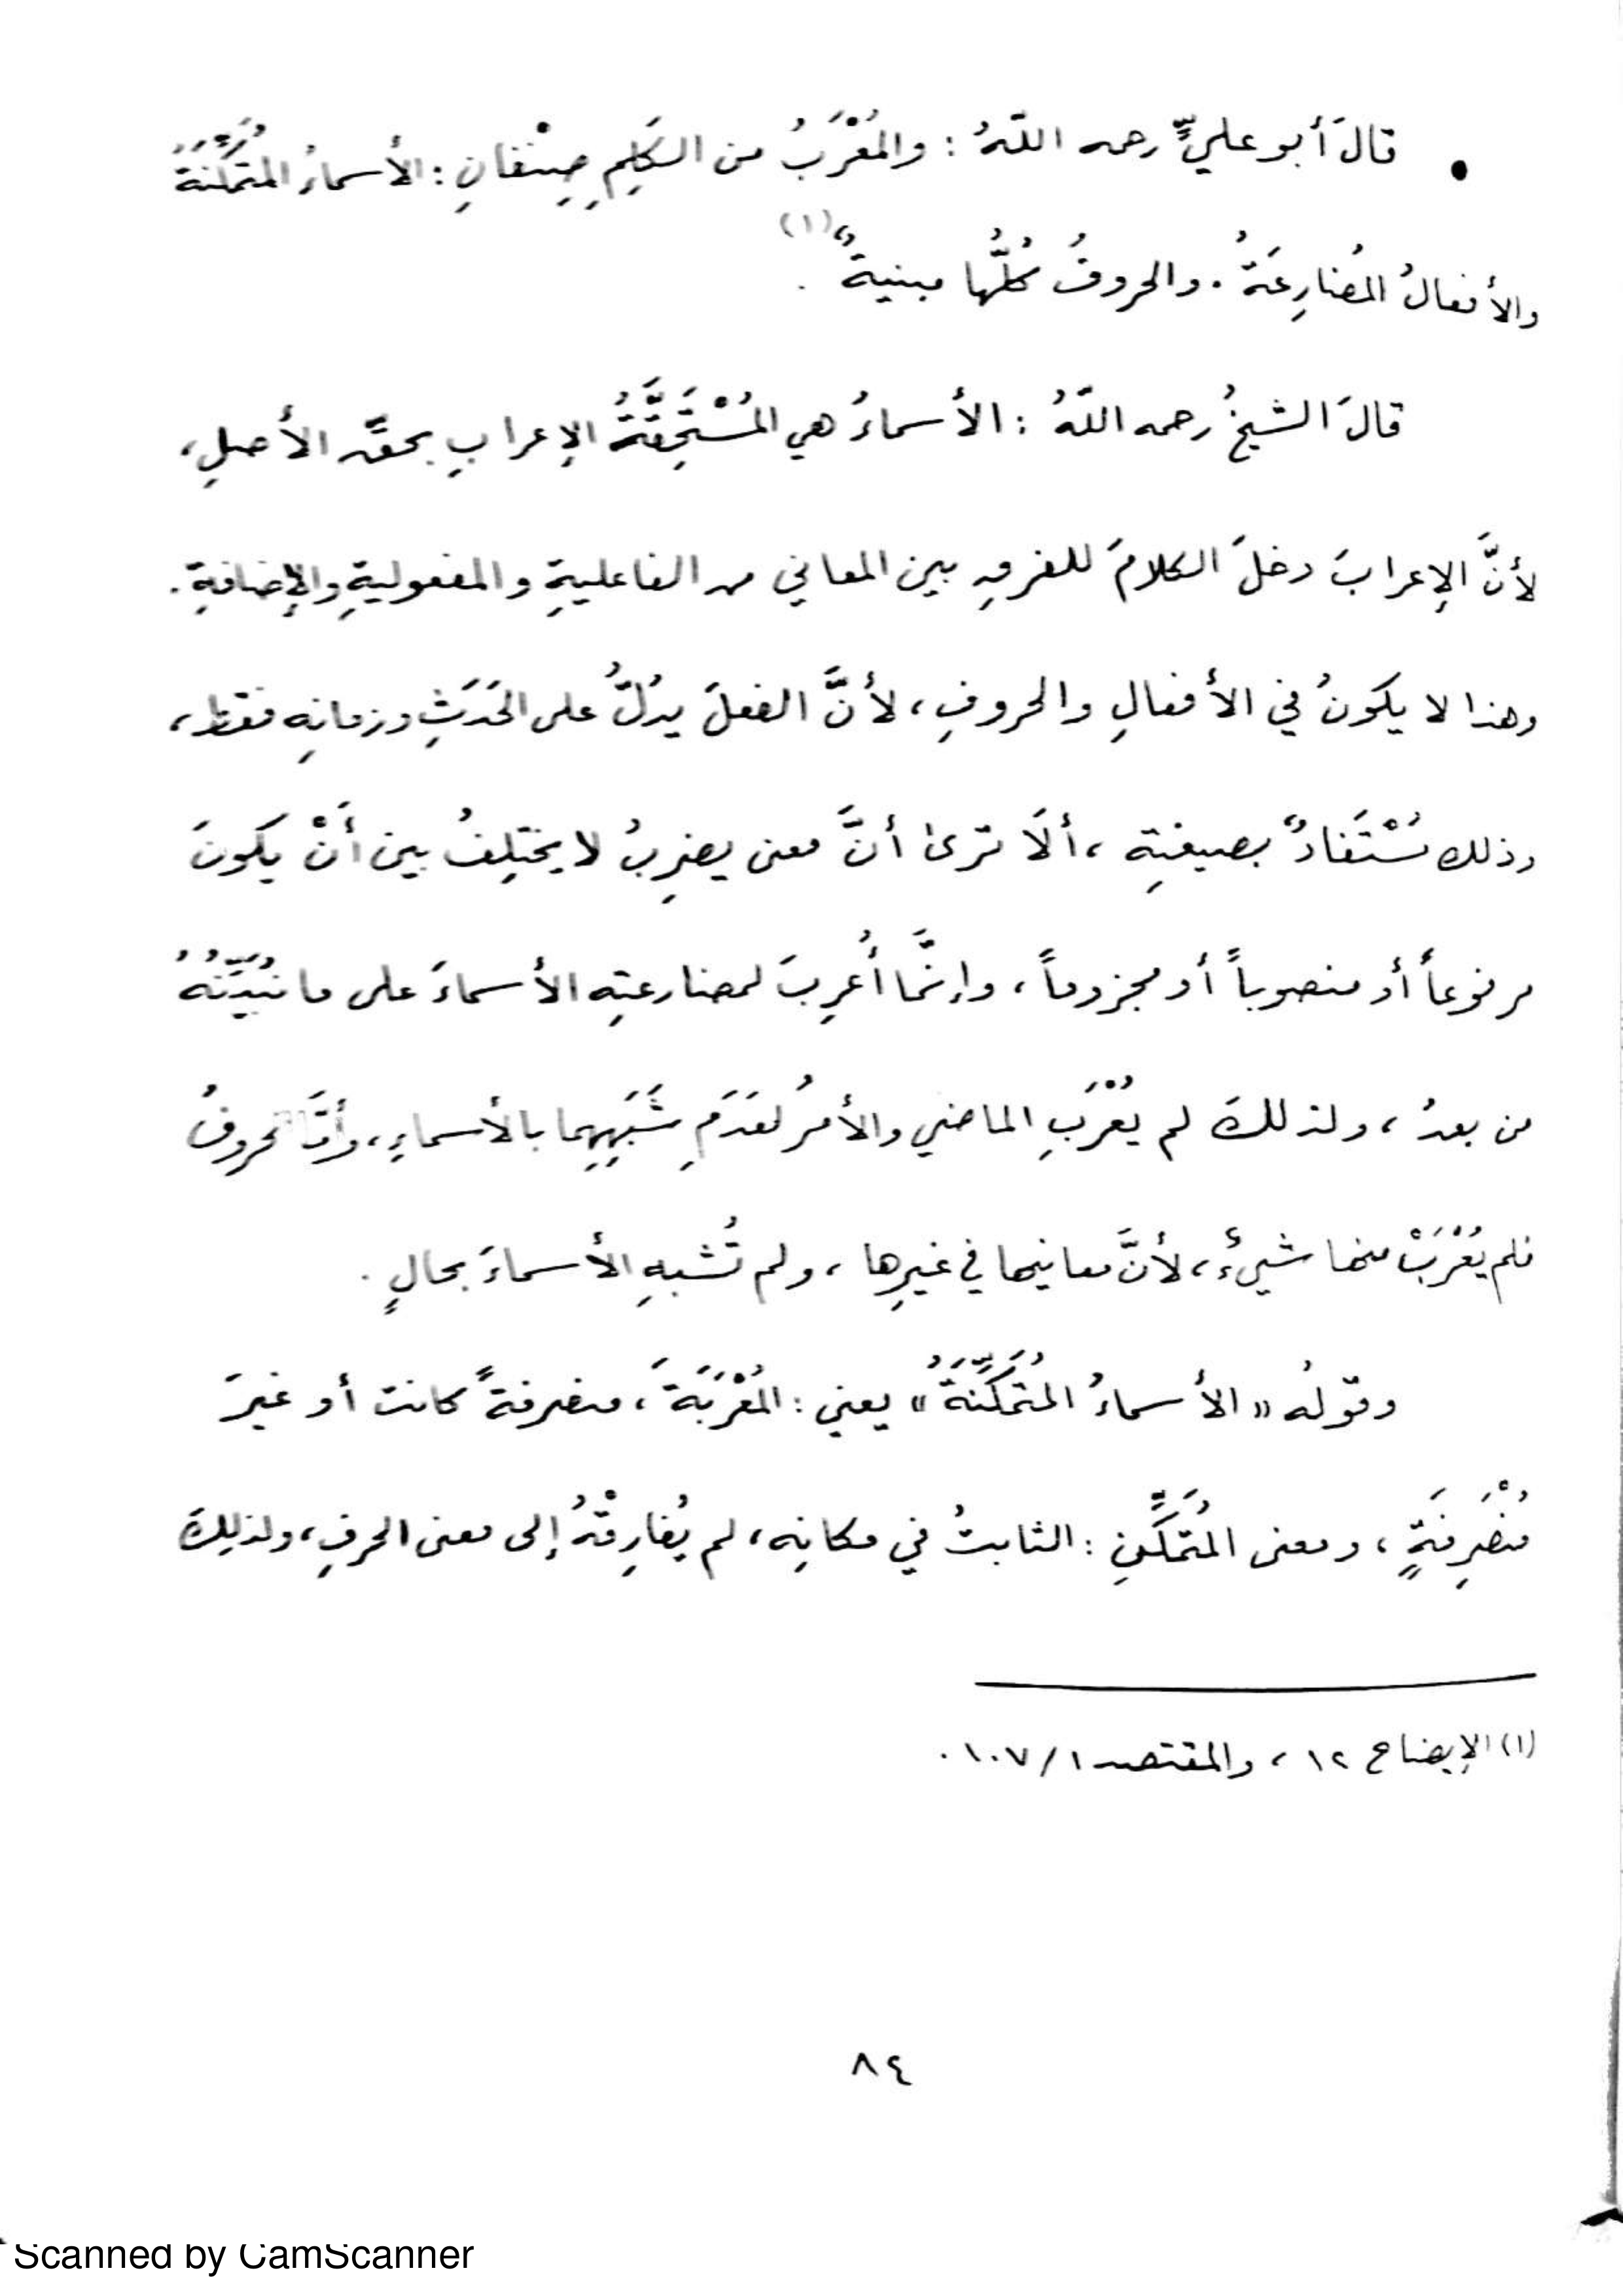 • قالَ أبو عليٍّ رحمه اللّهُ : والمُعْرَبُ من الكَلِمِ صِنْفانِ : الأسماءُ المُتَمَكِّنَةُ
والأفعالُ المُضارِعَةُ . والحروفُ كُلُّها مبنيةٌ (١) .
قالَ الشيخُ رحمه اللّهُ : الأسماءُ هي المُسْتَحِقَّةُ الإعرابِ بحقِّ الأصلِ ،
لأنَّ الإعرابَ دخلَ الكلامَ للفرقِ بين المعاني من الفاعليةِ والمفعوليةِ والإضافةِ .
وهذا لا يكونُ في الأفعالِ والحروفِ ، لأنَّ الفعلَ يدُلُّ على الحَدَثِ وزمانِه فقط ،
وذلك مُسْتَفَادٌ بصيغتِه ، ألَا ترىٰ أنَّ معنى يضرِبُ لا يختلِفُ بين أَنْ يكونَ
مرفوعاً أو منصوباً أو مجزوماً ، وإنَّما أُعرِبَ لمضارعتِه الأسماءَ على ما نُبَيِّنُهُ
من بعدُ ، ولذلكَ لم يُعْرَبِ الماضي والأمرُ لعَدَمِ شَبَهِهِما بالأسماءِ ، وأمَّا الحروفُ
فلم يُعْرَبْ منها شيءٌ ، لأنَّ معانيها في غيرِها ، ولم تُشبهِ الأسماءَ بحالٍ .
وقولُه « الأسماءُ المُتَمَكِّنَةُ » يعني : المُعْرَبَةَ ، منصرفةً كانت أو غيرَ
مُنْصَرِفَةٍ ، ومعنى المُتَمَكِّنِ : الثابتُ في مكانِه ، لم يُفارِقْهُ إلى معنى الحرفِ ، ولذلِكَ
(١) الإيضاح ١٢ ، والمقتصد ١/١٠٧ .
٨٤
Scanned by CamScanner